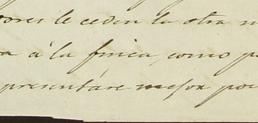 ores le ceden la otra m
a à la finca, como p
presentáre mejor pos